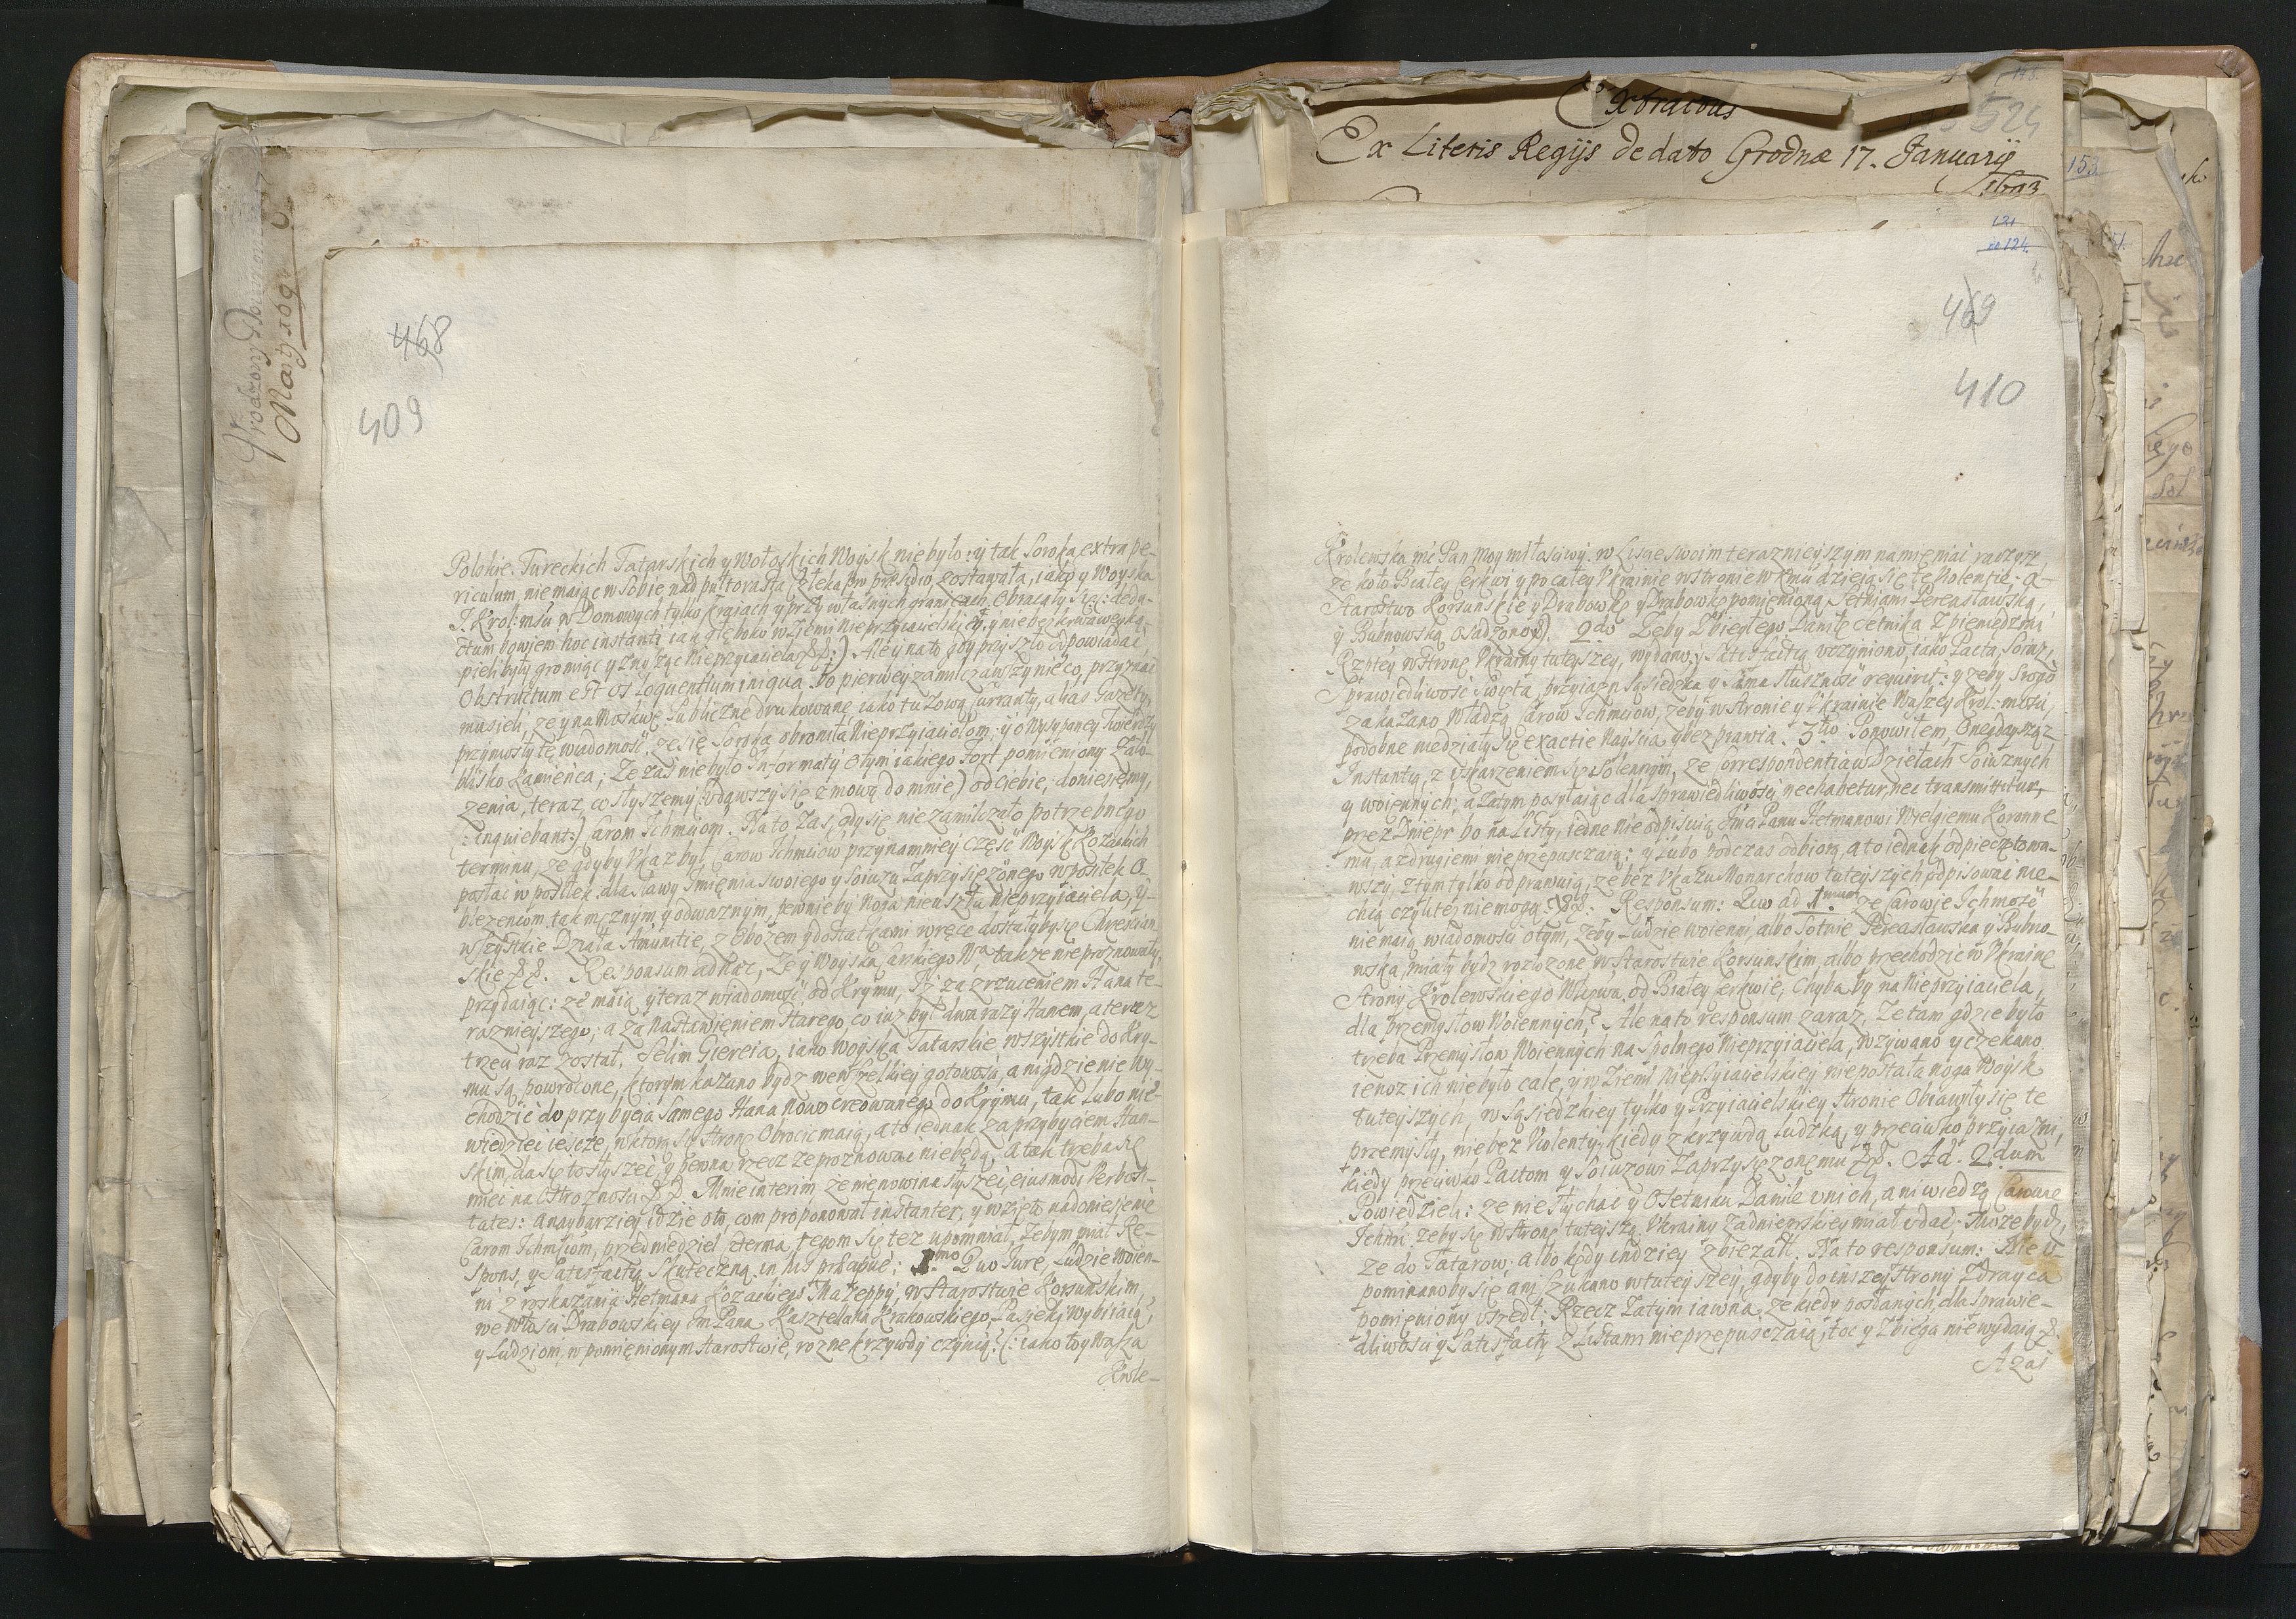 468
409
Polskie. Tureckich Tatarskich y Wołoskich Woysk nie było: y tak Soroka extra pe-
riculum, nie maiąc w Sobie nad pułtorasta Człeka pro præsidio, zostawała, iako y Woyska
J. Krol: msći w Domowych tylko kraiach y przy własnych granicach Obracały się: aedy-
ctum bowiem hoc instanti iak głęboko w Ziemi Nieprzyiacielskiey, y nie bez krwawey ką-
pieli były gromiąc y znosząc Nieprzyiaciela &&:) Ale y na to gdy przyszło odpowiadać
Obstructum est os loquentium iniqua. bo pierwey zamilczawszy nieco, przyznać
musieli, ze y na Moskwę Publiczne drukowane, iako tu zową Curranty, alias Gazety,
przyniosły tę wiadomość, ze się Soroka obroniła Nieprzyiaciołom: y o Wysypaney Twierdzy
blisko Kamieńca; Ze zaś nie było Informaty o tym iakiego Fort pomieniony Zało-
zenia, teraz co słyszemy (: udawszy się z mową do mnie) od Ciebie, doniesiemy,
(: inquiebant:) Carom Ichmciom. Na to zas, gdy się nie zamilczało potrzebnego
terminu, ze gdyby Ukaz był Carow Ichmciow przynamniey część Woysk Kozackich
posłać w posiłek dla sławy Imięnia swoiego y soiuzu zaprzysięzonego w posiłek O-
blezencom tak męznym y odwaznym, pewnieby Noga nie uszła nieprzyiaciela, y
wszystkie Działa Amunitie, z Obozem y dostatkami w ręce dostałyby się Chrzescian-
skie &&. Responsum ad hæc, Ze y Woyska Carskiego Wa takze nie proznowały,
przydaiąc: ze maią y teraz wiadomość od Krymu, Iz za zrzuceniem Hana te-
raznieyszego; a za Nastawięniem starego, co iuz był dwa razy Hanem, a teraz
trzeci raz został, Selim Giereia, iako Woyska Tatarskie wszystkie do Kry-
mu są powrocone, ktorym kazano bydz we wszelkiey gotowości, a nigdzie nie Wy-
chodzić do przybycia samego Hana Nowo creowanego do Krymu, tak lubo nie
wiedzieć iescze, w ktorą się stronę Obrocić maią, a to iednak za przybyciem Han-
skim, da się to słyszeć, y pewna rzecz ze proznować nie będą. a tak trzeba się
mieć na Ostrożności &&. Mnie interim ze nie nowina słyszeć, eiusmodi Verbosi-
tates: a naybarziey idzie o to, com proponował instanter, y wzięto na doniesienie
Carom Ichmciom, przed niedziel czterma, tegom się tez upomniał, żebym miał Re-
spons, y Satisfactią Skuteczną in his præcipuè; 1.mo Quo Iure, Ludzie Woien-
ni z roskazania Hetmana Kozackiego Mazeppy, w Starostwie Korsunskim,
we Włosci Drabowskiey Im Pana Kasztellana Krakowskiego, Pasieki Wybieraią,
y Ludziom, w pomięnionym starostwie, rozne krzywdy czynią? (: iako to y Wasza
Krole-
Ex Literis Regijs de dato Grodnæ 17. Januarij
524
153
121
do 124.
469
410
Krolewska mć Pan Moy miłościwy. w Liscie swoim teraznieyszym namięniać raczysz,
ze koło Białey Cerkwi y po całey Ukrainie w stronie W Kmci dzieią się te Violentie: a-
Starostwo Korsunskie y Drabowkę y Drabowkę pomięnioną Setniami Pereasławską,
y Bubnowską osadzono:). 2do Zeby Zbiegłego Daniłę Cetnika z pieniędzmi
Rzptey w stronę Ukrainy tuteyszey, wydano, y Satisfactią uczyniono, iako Pacta, Soiuz,
Sprawiedliwość Swięta, przyiazn Sąsiedzka y Sama słuszność requirit: y zeby srogo
zakazano Władzą Carow Ichmciow, zeby w stronie y Ukrainie Waszey Krol: mości,
podobne niedziały się exactie Nayścia y bezprawia. 3tio Ponowiłem, Onegdayszą
Instantią, z Uskarzeniem się Solennym, ze Correspondentia w Dziełach Soiuznych
y woiennych; a zatym posyłaiąc dla sprawiedliwości nec habetur, nec transmittitur,
prez Dniepr bo na Listy, iedne nie odpisuią Jmći Panu Hetmanowi Wielgiemu Koronne
mu, a z drugiemi nie przepusczaią: y lubo podczas odbiorą, a to iednak odpieczętowa-
wszy, z tym tylko odprawuią, ze bez Ukazu Monarchow tuteyszych odpisować nie
chcą czyli tez nie mogą. &&. Responsum: Quo ad 1mum ze Carowie Ichmość
nie maią wiadomości o tym, zeby Ludzie woienni, albo Sotnie Pereasławska y Bubno-
wska, miały bydz rozłozone w Starostwie Korsunskim, albo przechodzić w Ukrainę
Strony Krolewskiego Wa, od Białey Cerkwie, Chyba by na Nieprzyiaciela,
dla przemysłow Woiennych? Ale na to responsum zaraz. Ze tam gdzie było
trzeba Przemysłow Woiennych na Spolnego Nieprzyiaciela, wzywano y czekano
ienoz ich nie było cale, y w Ziemi Nieprzyiacielskiey nie postała noga Woysk
tuteyszych, w Sąsiedzkiey tylko y Przyiacielskiey stronie Obiawiły się te
przemysły, nie bez Violenty, kiedy z krzywdą Ludzką, y przeciwko przyiazni,
kiedy przeciwko Pactom y Soiuzowi Zaprzysięzonemu &&. Ad. 2dum
Powiedzieli: ze nie słychać y o Setniku Danile u nich, ani wiedzą Carowie
Ichmć zeby się w stronę tuteyszą Ukrainy Zadnieprskiey miał udać; Moze bydz,
ze do Tatarow, albo kędy indziey zbiezał. Na to responsum: Nie u-
pominanoby się ani Szukano w tuteyszey, gdyby do inszey strony Zdrayca
pomięniony uszedł; Rzecz Zatym iawna, ze kiedy posłanych, dla Sprawie-
dliwosci y Satisfactiy z Listami nieprzepusczaią, toć y Zbiega nie wydaią &.
A zas